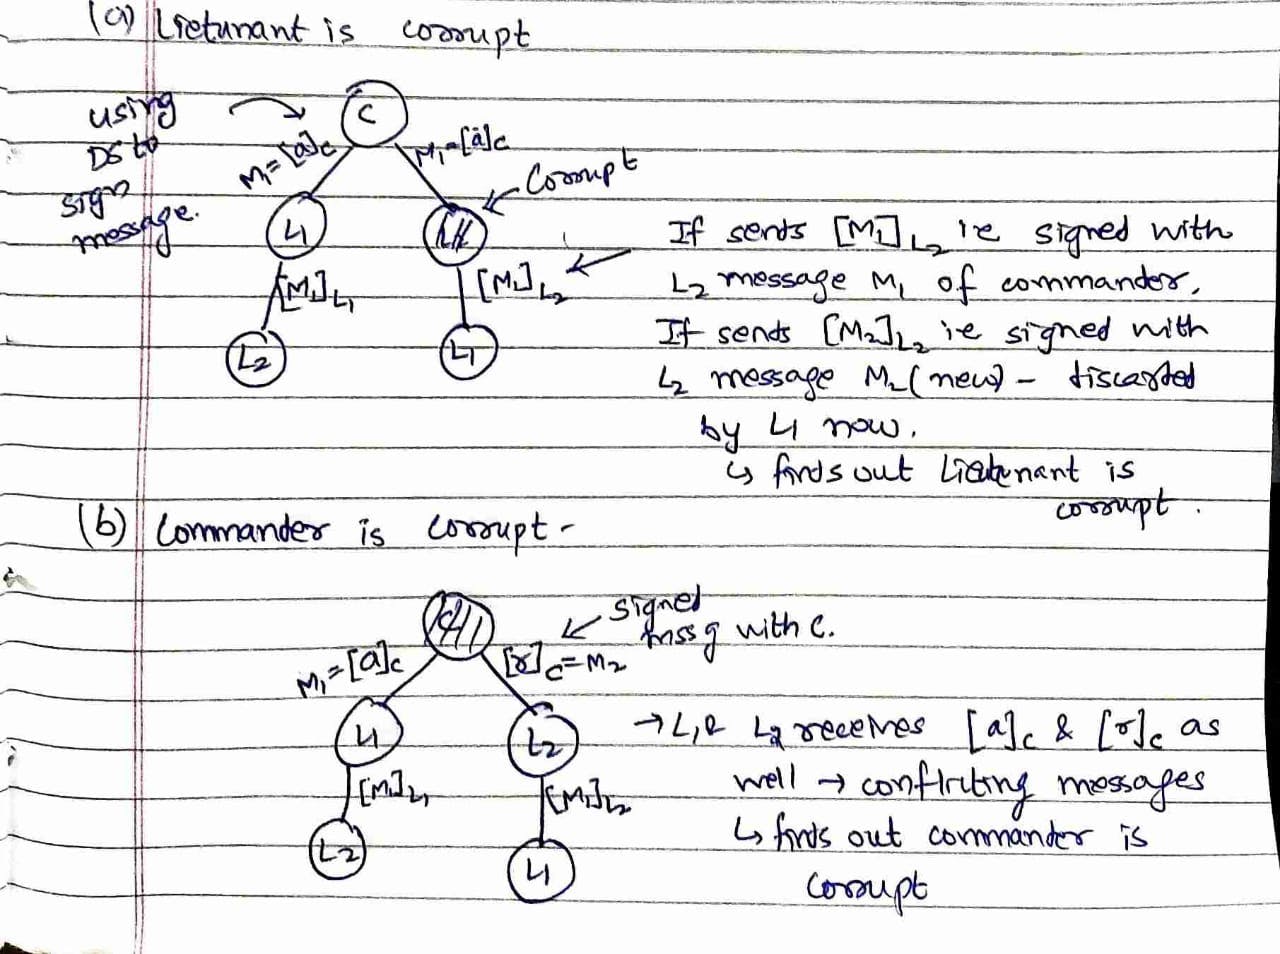 (a) Lietunant is corrupt
using
DS to
sign
message.
C
M1=[a]c
M1=[a]c
Corrupt
L1
[M1]L1
[M1]L2
L2
L1
If sends [M1]L2 ie signed with
L2 message M1 of commander,
If sends [M2]L2 ie signed with
L2 message M2(new) - discarted
by L1 now.
↳ finds out Lieutenant is
corrupt.
(b) Commander is corrupt -
signed
mssg with C.
M1=[a]c
[r]c=M2
L1
L2
[M1]L1
[M1]L2
L2
L1
→ L1 & L2 receives [a]c & [r]c as
well → conflicting messages
↳ finds out commander is
corrupt